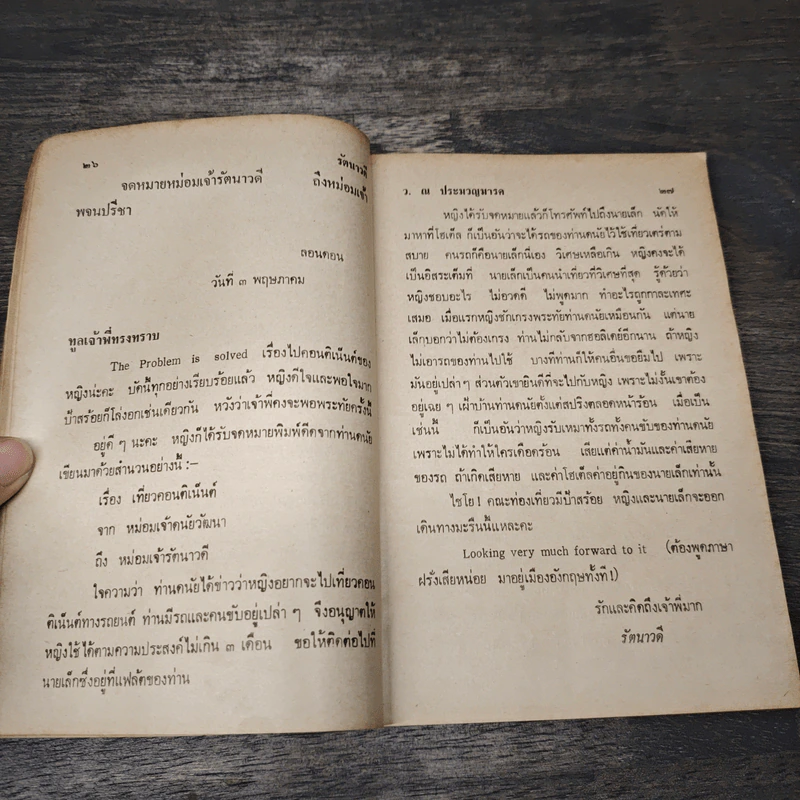 ๒๖ รัตนาวดี
จดหมายหม่อมเจ้ารัตนาวดี ถึงหม่อมเจ้า
พจนปรีชา
ลอนดอน
วันที่ ๓ พฤษภาคม
ทูลเจ้าพี่ทรงทราบ
The Problem is solved เรื่องไปคอนติเน็นต์ของ
หญิงน่ะคะ บัดนี้ทุกอย่างเรียบร้อยแล้ว หญิงดีใจและพอใจมาก
ป้าสร้อยก็โล่งอกเช่นเดียวกัน หวังว่าเจ้าพี่คงจะพอพระทัยครั้งนี้
อยู่ดี ๆ นะคะ หญิงก็ได้รับจดหมายพิมพ์ดีดจากท่านดนัย
เขียนมาด้วยสำนวนอย่างนี้ :–
เรื่อง เที่ยวคอนติเน็นต์
จาก หม่อมเจ้าดนัยวัฒนา
ถึง หม่อมเจ้ารัตนาวดี
ใจความว่า ท่านดนัยได้ข่าวว่าหญิงอยากจะไปเที่ยวคอน
ติเน็นต์ทางรถยนต์ ท่านมีรถและคนขับอยู่เปล่า ๆ จึงอนุญาตให้
หญิงใช้ได้ตามความประสงค์ไม่เกิน ๓ เดือน ขอให้ติดต่อไปที่
นายเล็กซึ่งอยู่ที่แฟลตของท่าน
ว. ณ ประมวญมารค ๒๗
หญิงได้รับจดหมายแล้วก็โทรศัพท์ไปถึงนายเล็ก นัดให้
มาหาที่โฮเต็ล ก็เป็นอันว่าจะได้รถของท่านดนัยไว้ใช้เที่ยวเตร่ตาม
สบาย คนรถก็คือนายเล็กนี่เอง วิเศษเหลือเกิน หญิงคงจะได้
เป็นอิสระเต็มที่ นายเล็กเป็นคนนำเที่ยวที่วิเศษที่สุด รู้ด้วยว่า
หญิงชอบอะไร ไม่อวดดี ไม่พูดมาก ทำอะไรถูกกาละเทศะ
เสมอ เมื่อแรกหญิงชักเกรงพระทัยท่านดนัยเหมือนกัน แต่นาย
เล็กบอกว่าไม่ต้องเกรง ท่านไม่กลับจากฮอลิเดย์อีกนาน ถ้าหญิง
ไม่เอารถของท่านไปใช้ บางทีท่านก็ให้คนอื่นขอยืมไป เพราะ
มันอยู่เปล่า ๆ ส่วนตัวเขายินดีที่จะไปกับหญิง เพราะไม่งั้นเขาต้อง
อยู่เฉย ๆ เฝ้าบ้านท่านดนัยตั้งแต่สปริงตลอดหน้าร้อน เมื่อเป็น
เช่นนี้ ก็เป็นอันว่าหญิงรับเหมาทั้งรถทั้งคนขับของท่านดนัย
เพราะไม่ได้ทำให้ใครเดือดร้อน เสียแต่ค่าน้ำมันและค่าเสียหาย
ของรถ ถ้าเกิดเสียหาย และค่าโฮเต็ลค่าอยู่กินของนายเล็กเท่านั้น
ไชโย ! คณะท่องเที่ยวมีป้าสร้อย หญิงและนายเล็กจะออก
เดินทางมะรืนนี้แหละคะ
Looking very much forward to it (ต้องพูดภาษา
ฝรั่งเสียหน่อย มาอยู่เมืองอังกฤษทั้งที !)
รักและคิดถึงเจ้าพี่มาก
รัตนาวดี